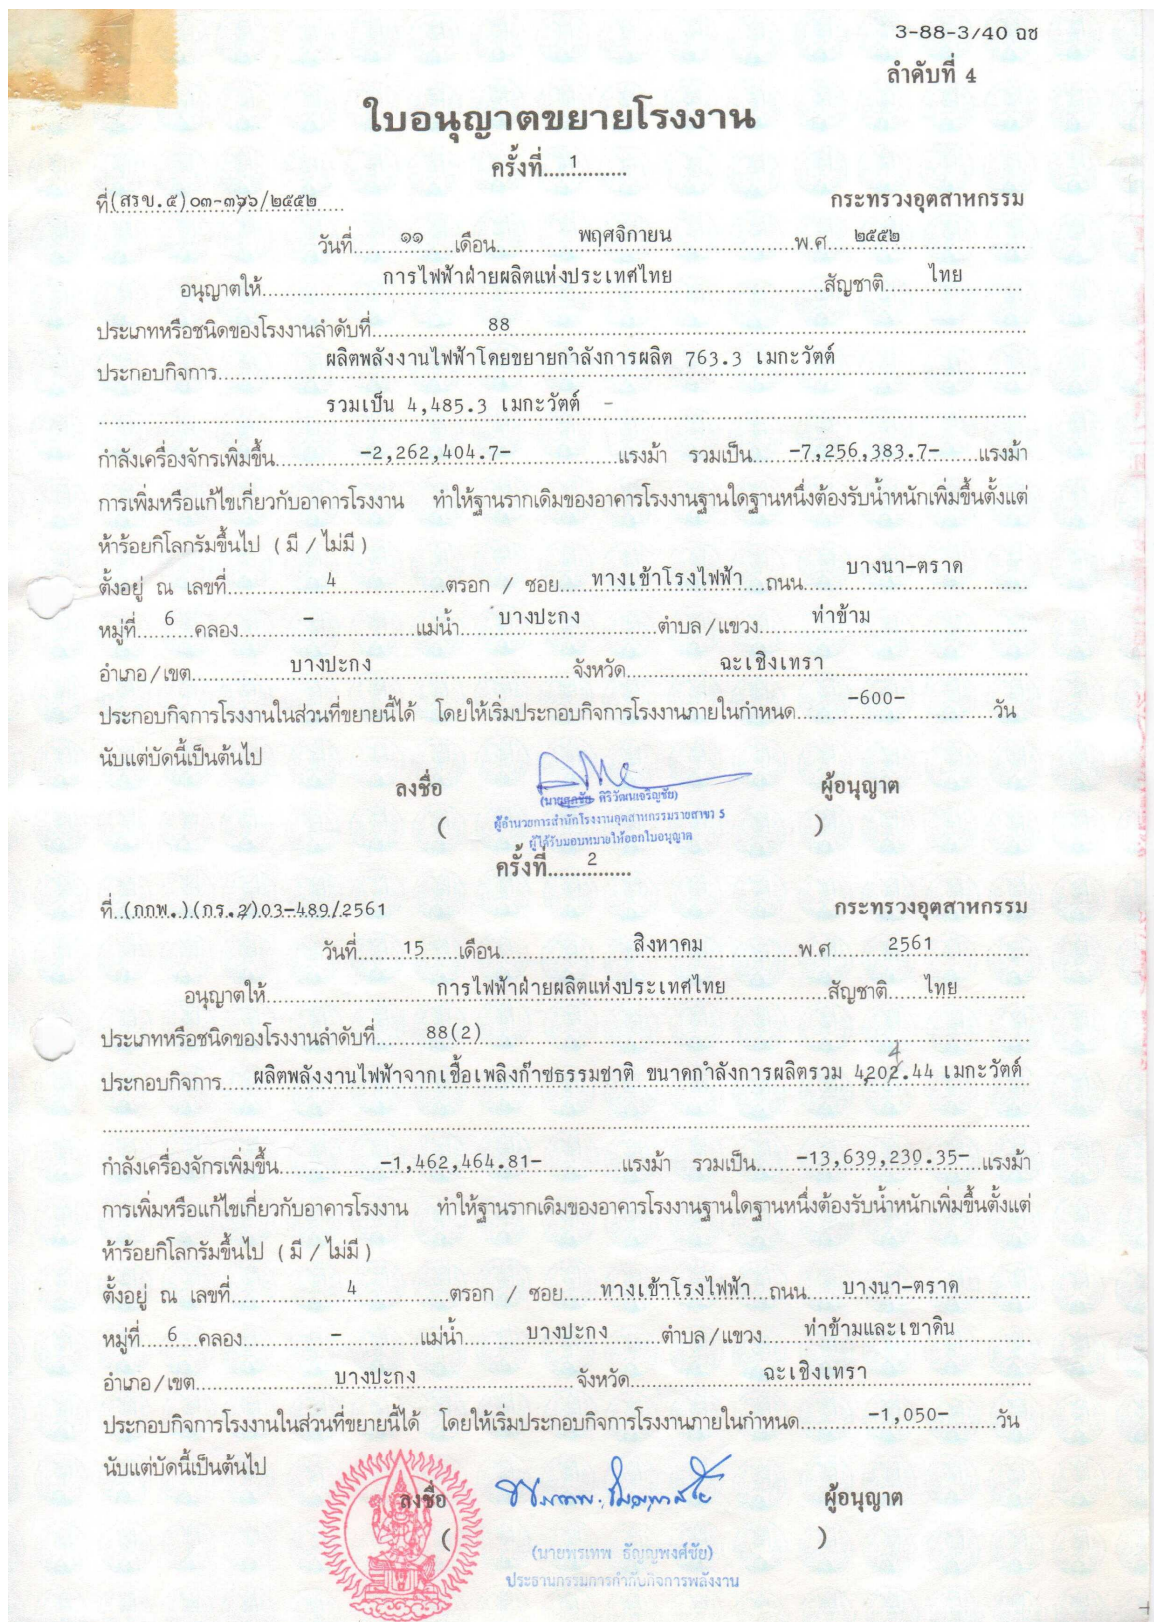 3-88-3/40 ฉช
ลำดับที่ 4
ใบอนุญาตขยายโรงงาน
ครั้งที่.....1..............
ที่(สรข.๕)๐๓-๓๖๖/๒๕๕๒.....
กระทรวงอุตสาหกรรม
วันที่........๑๑....เดือน............พฤศจิกายน....................พ.ศ....๒๕๕๒....................
อนุญาตให้....................การไฟฟ้าฝ่ายผลิตแห่งประเทศไทย....................สัญชาติ......ไทย..........
ประเภทหรือชนิดของโรงงานลำดับที่....................88....................
ประกอบกิจการ...............ผลิตพลังงานไฟฟ้าโดยขยายกำลังการผลิต 763.3 เมกะวัตต์....................
....................รวมเป็น 4,485.3 เมกะวัตต์ -....................
กำลังเครื่องจักรเพิ่มขึ้น...............-2,262,404.7-...............แรงม้า รวมเป็น......-7,256,383.7-......แรงม้า
การเพิ่มหรือแก้ไขเกี่ยวกับอาคารโรงงาน ทำให้ฐานรากเดิมของอาคารโรงงานฐานใดฐานหนึ่งต้องรับน้ำหนักเพิ่มขึ้นตั้งแต่
ห้าร้อยกิโลกรัมขึ้นไป ( มี / ไม่มี )
ตั้งอยู่ ณ เลขที่...............4...............ตรอก / ซอย.....ทางเข้าโรงไฟฟ้า...ถนน.......บางนา-ตราด..........
หมู่ที่.....6...คลอง..........-...............แม่น้ำ......บางปะกง..........ตำบล/แขวง........ท่าข้าม....................
อำเภอ/เขต...............บางปะกง....................จังหวัด...............ฉะเชิงเทรา....................
ประกอบกิจการโรงงานในส่วนที่ขยายนี้ได้ โดยให้เริ่มประกอบกิจการโรงงานภายในกำหนด..........-600-...............วัน
นับแต่บัดนี้เป็นต้นไป
ลงชื่อ ผู้อนุญาต
(นาย ศิริวัฒนเจริญชัย)
( ผู้อำนวยการสำนักโรงงานอุตสาหกรรมรายสาขา 5 )
ผู้ได้รับมอบหมายให้ออกใบอนุญาต
ครั้งที่.......2........
ที่..(กกพ.)(กร.2)03-489/2561
กระทรวงอุตสาหกรรม
วันที่........15......เดือน....................สิงหาคม...............พ.ศ........2561....................
อนุญาตให้....................การไฟฟ้าฝ่ายผลิตแห่งประเทศไทย...............สัญชาติ......ไทย..........
ประเภทหรือชนิดของโรงงานลำดับที่........88(2)....................
4
ประกอบกิจการ.....ผลิตพลังงานไฟฟ้าจากเชื้อเพลิงก๊าซธรรมชาติ ขนาดกำลังการผลิตรวม 4,202.44 เมกะวัตต์
กำลังเครื่องจักรเพิ่มขึ้น...............-1,462,464.81-...............แรงม้า รวมเป็น......-13,639,230.35-..แรงม้า
การเพิ่มหรือแก้ไขเกี่ยวกับอาคารโรงงาน ทำให้ฐานรากเดิมของอาคารโรงงานฐานใดฐานหนึ่งต้องรับน้ำหนักเพิ่มขึ้นตั้งแต่
ห้าร้อยกิโลกรัมขึ้นไป ( มี / ไม่มี )
ตั้งอยู่ ณ เลขที่...............4...............ตรอก / ซอย.....ทางเข้าโรงไฟฟ้า...ถนน.....บางนา-ตราด..........
หมู่ที่.....6...คลอง...............-...............แม่น้ำ..........บางปะกง........ตำบล/แขวง.....ท่าข้ามและเขาดิน..........
อำเภอ/เขต....................บางปะกง....................จังหวัด....................ฉะเชิงเทรา....................
ประกอบกิจการโรงงานในส่วนที่ขยายนี้ได้ โดยให้เริ่มประกอบกิจการโรงงานภายในกำหนด..........-1,050-..........วัน
นับแต่บัดนี้เป็นต้นไป
ลงชื่อ ผู้อนุญาต
( )
(นายพรเทพ ธัญญพงศ์ชัย)
ประธานกรรมการกำกับกิจการพลังงาน